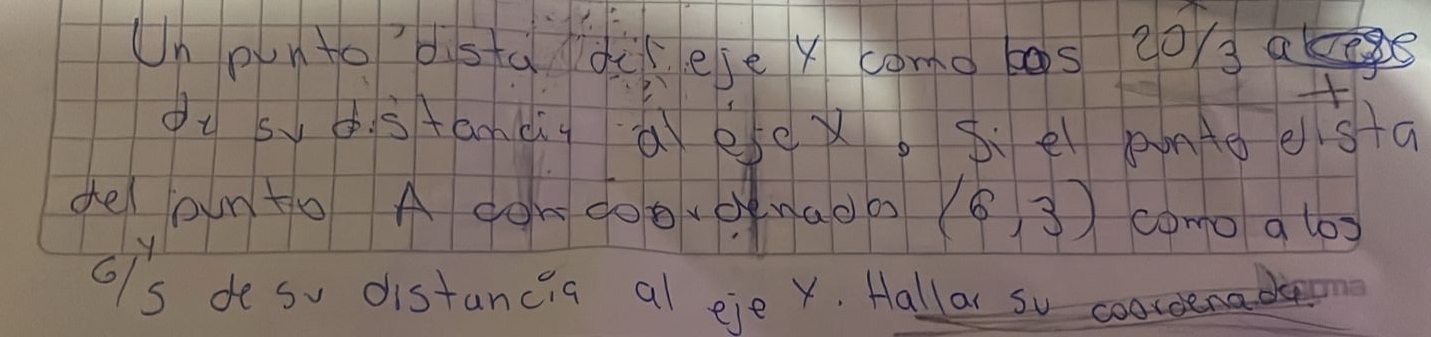 Un punto dista del eje Y como los 20/3 a
de su distancia al eje X, Si el punto dista
del punto A con coordenadas (6,3) como a los
6/5 de su distancia al eje Y. Hallar su coordenada